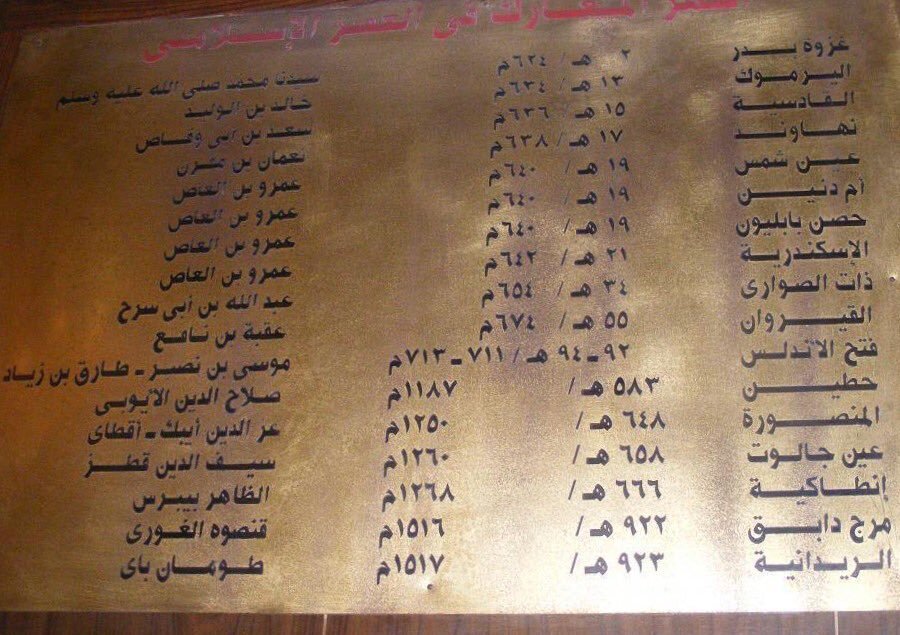 أشهر المعارك فى العصر الإسلامى
غزوة بدر ٢ هـ / ٦٢٤م سيدنا محمد صلى الله عليه وسلم
اليرموك ١٣ هـ / ٦٣٤م خالد بن الوليد
القادسية ١٥ هـ / ٦٣٦م سعد بن أبى وقاص
نهاوند ١٧ هـ / ٦٣٨م نعمان بن مقرن
عين شمس ١٩ هـ / ٦٤٠م عمرو بن العاص
أم دنين ١٩ هـ / ٦٤٠م عمرو بن العاص
حصن بابليون ١٩ هـ / ٦٤٠م عمرو بن العاص
الإسكندرية ٢١ هـ / ٦٤٢م عمرو بن العاص
ذات الصوارى ٣٤ هـ / ٦٥٤م عبد الله بن أبى سرح
القيروان ٥٥ هـ / ٦٧٤م عقبة بن نافع
فتح الأندلس ٩٢ - ٩٤ هـ / ٧١١ - ٧١٣م موسى بن نصير - طارق بن زياد
حطين ٥٨٣ هـ / ١١٨٧م صلاح الدين الأيوبى
المنصورة ٦٤٨ هـ / ١٢٥٠م عز الدين أيبك - أقطاى
عين جالوت ٦٥٨ هـ / ١٢٦٠م سيف الدين قطز
إنطاكية ٦٦٦ هـ / ١٢٦٨م الظاهر بيبرس
مرج دابق ٩٢٢ هـ / ١٥١٦م قنصوه الغورى
الريدانية ٩٢٣ هـ / ١٥١٧م طومان باى